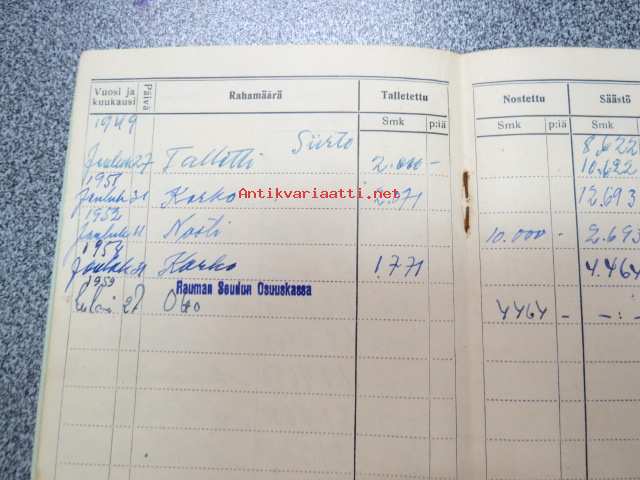 Vuosi ja kuukausi Päivä Rahamäärä Talletettu Nostettu Säästö
Smk p:iä Smk p:iä Smk
1949
Siirto 8.622
Jouluk 27 Talletti 2.000 - 10.622
1951
Jouluk 31 Korko 2.071 12.693
Antikvariaatti.net
1952
11 Nosti 10.000 - 2.693
1954
Jouluk 31 Korko 1.771 4.464
Rauman Seudun Osuuskassa
1959
27 Otto 4464 - -:-